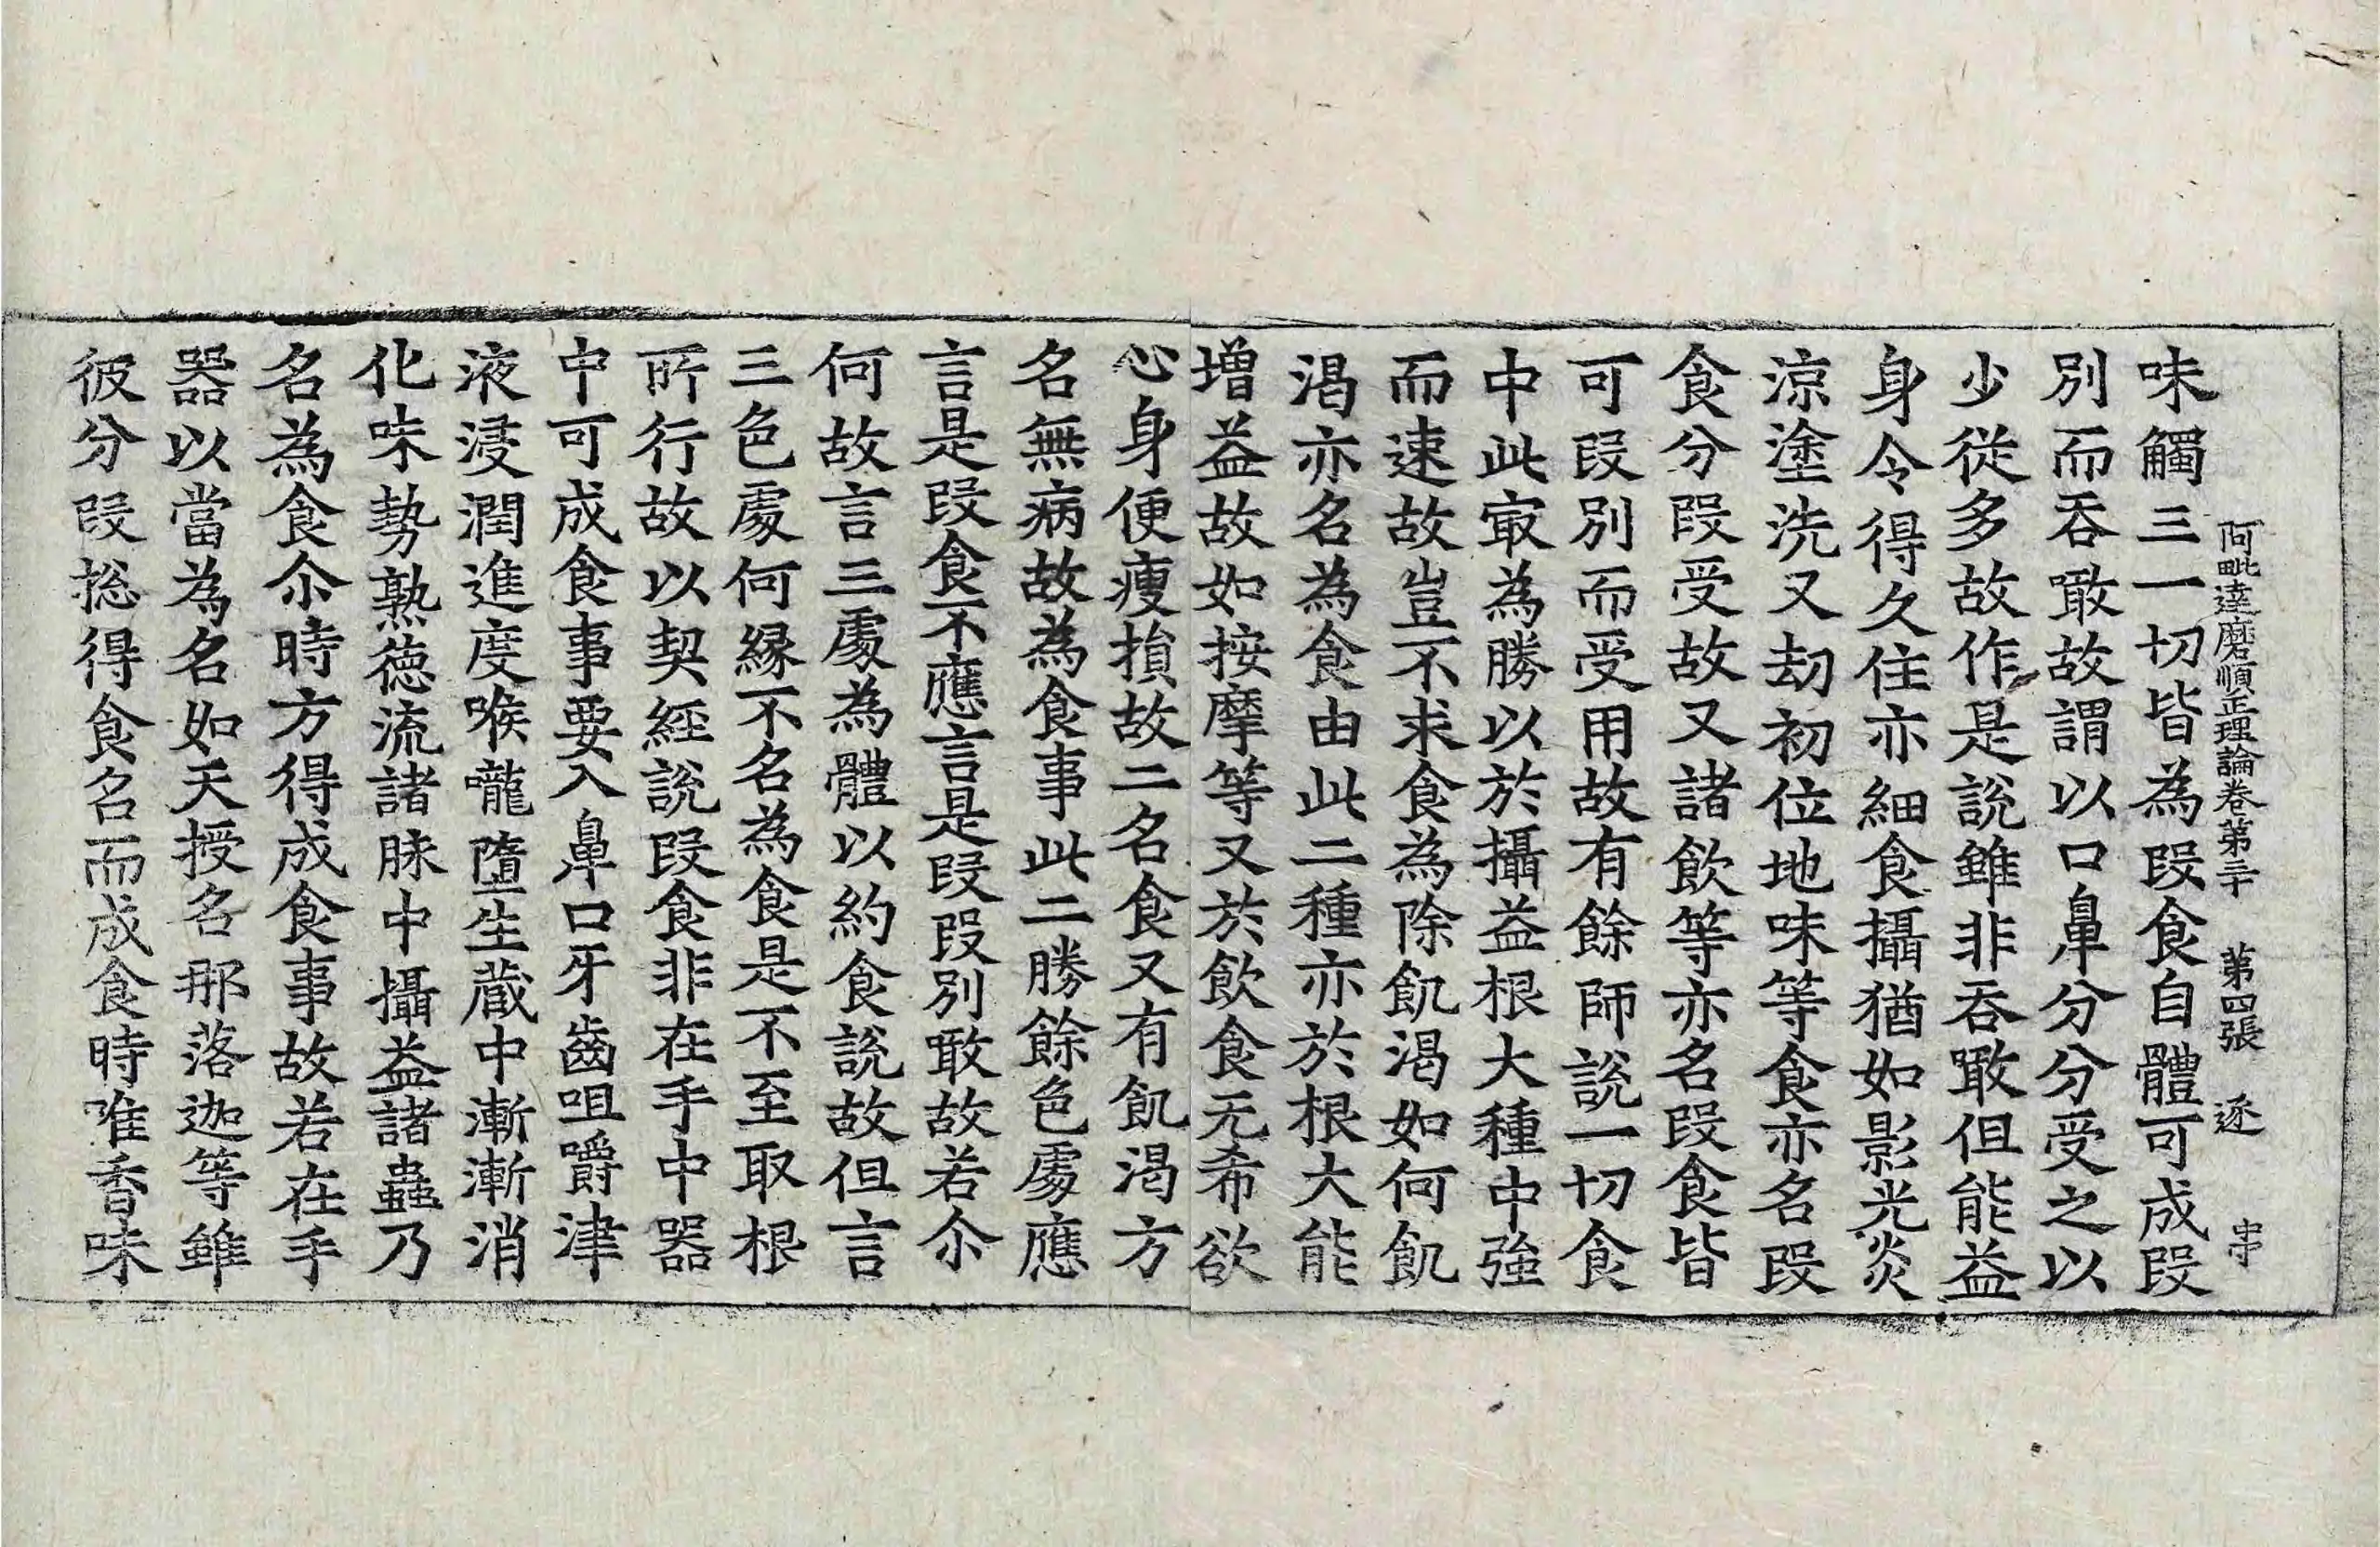 阿毗達磨順正理論卷第三十 第四張 逐
味觸三一切皆為段食自體可成段
別而吞噉故謂以口鼻分分受之以
少從多故作是說雖非吞噉但能益
身令得久住亦細食攝猶如影光炎
涼塗洗又劫初位地味等食亦名段
食分段受故又諸飲等亦名段食皆
可段別而受用故有餘師說一切食
中此㝡為勝以於攝益根大種中強
而速故豈不求食為除飢渴如何飢
渴亦名為食由此二種亦於根大能
增益故如按摩等又於飲食无希欲
心身便瘦損故二名食又有飢渴方
名無病故為食事此二勝餘色處應
言是段食不應言是段段別噉故若尒
何故言三處為體以約食說故但言
三色處何緣不名為食是不至取根
所行故以契經說段食非在手中器
中可成食事要入鼻口牙齒咀嚼津
液浸潤進度喉嚨墮生藏中漸漸消
化味勢熟德流諸脉中攝益諸蟲乃
名為食尒時方得成食事故若在手
器以當為名如天授名那落迦等雖
彼分段捴得食名而成食時唯香味